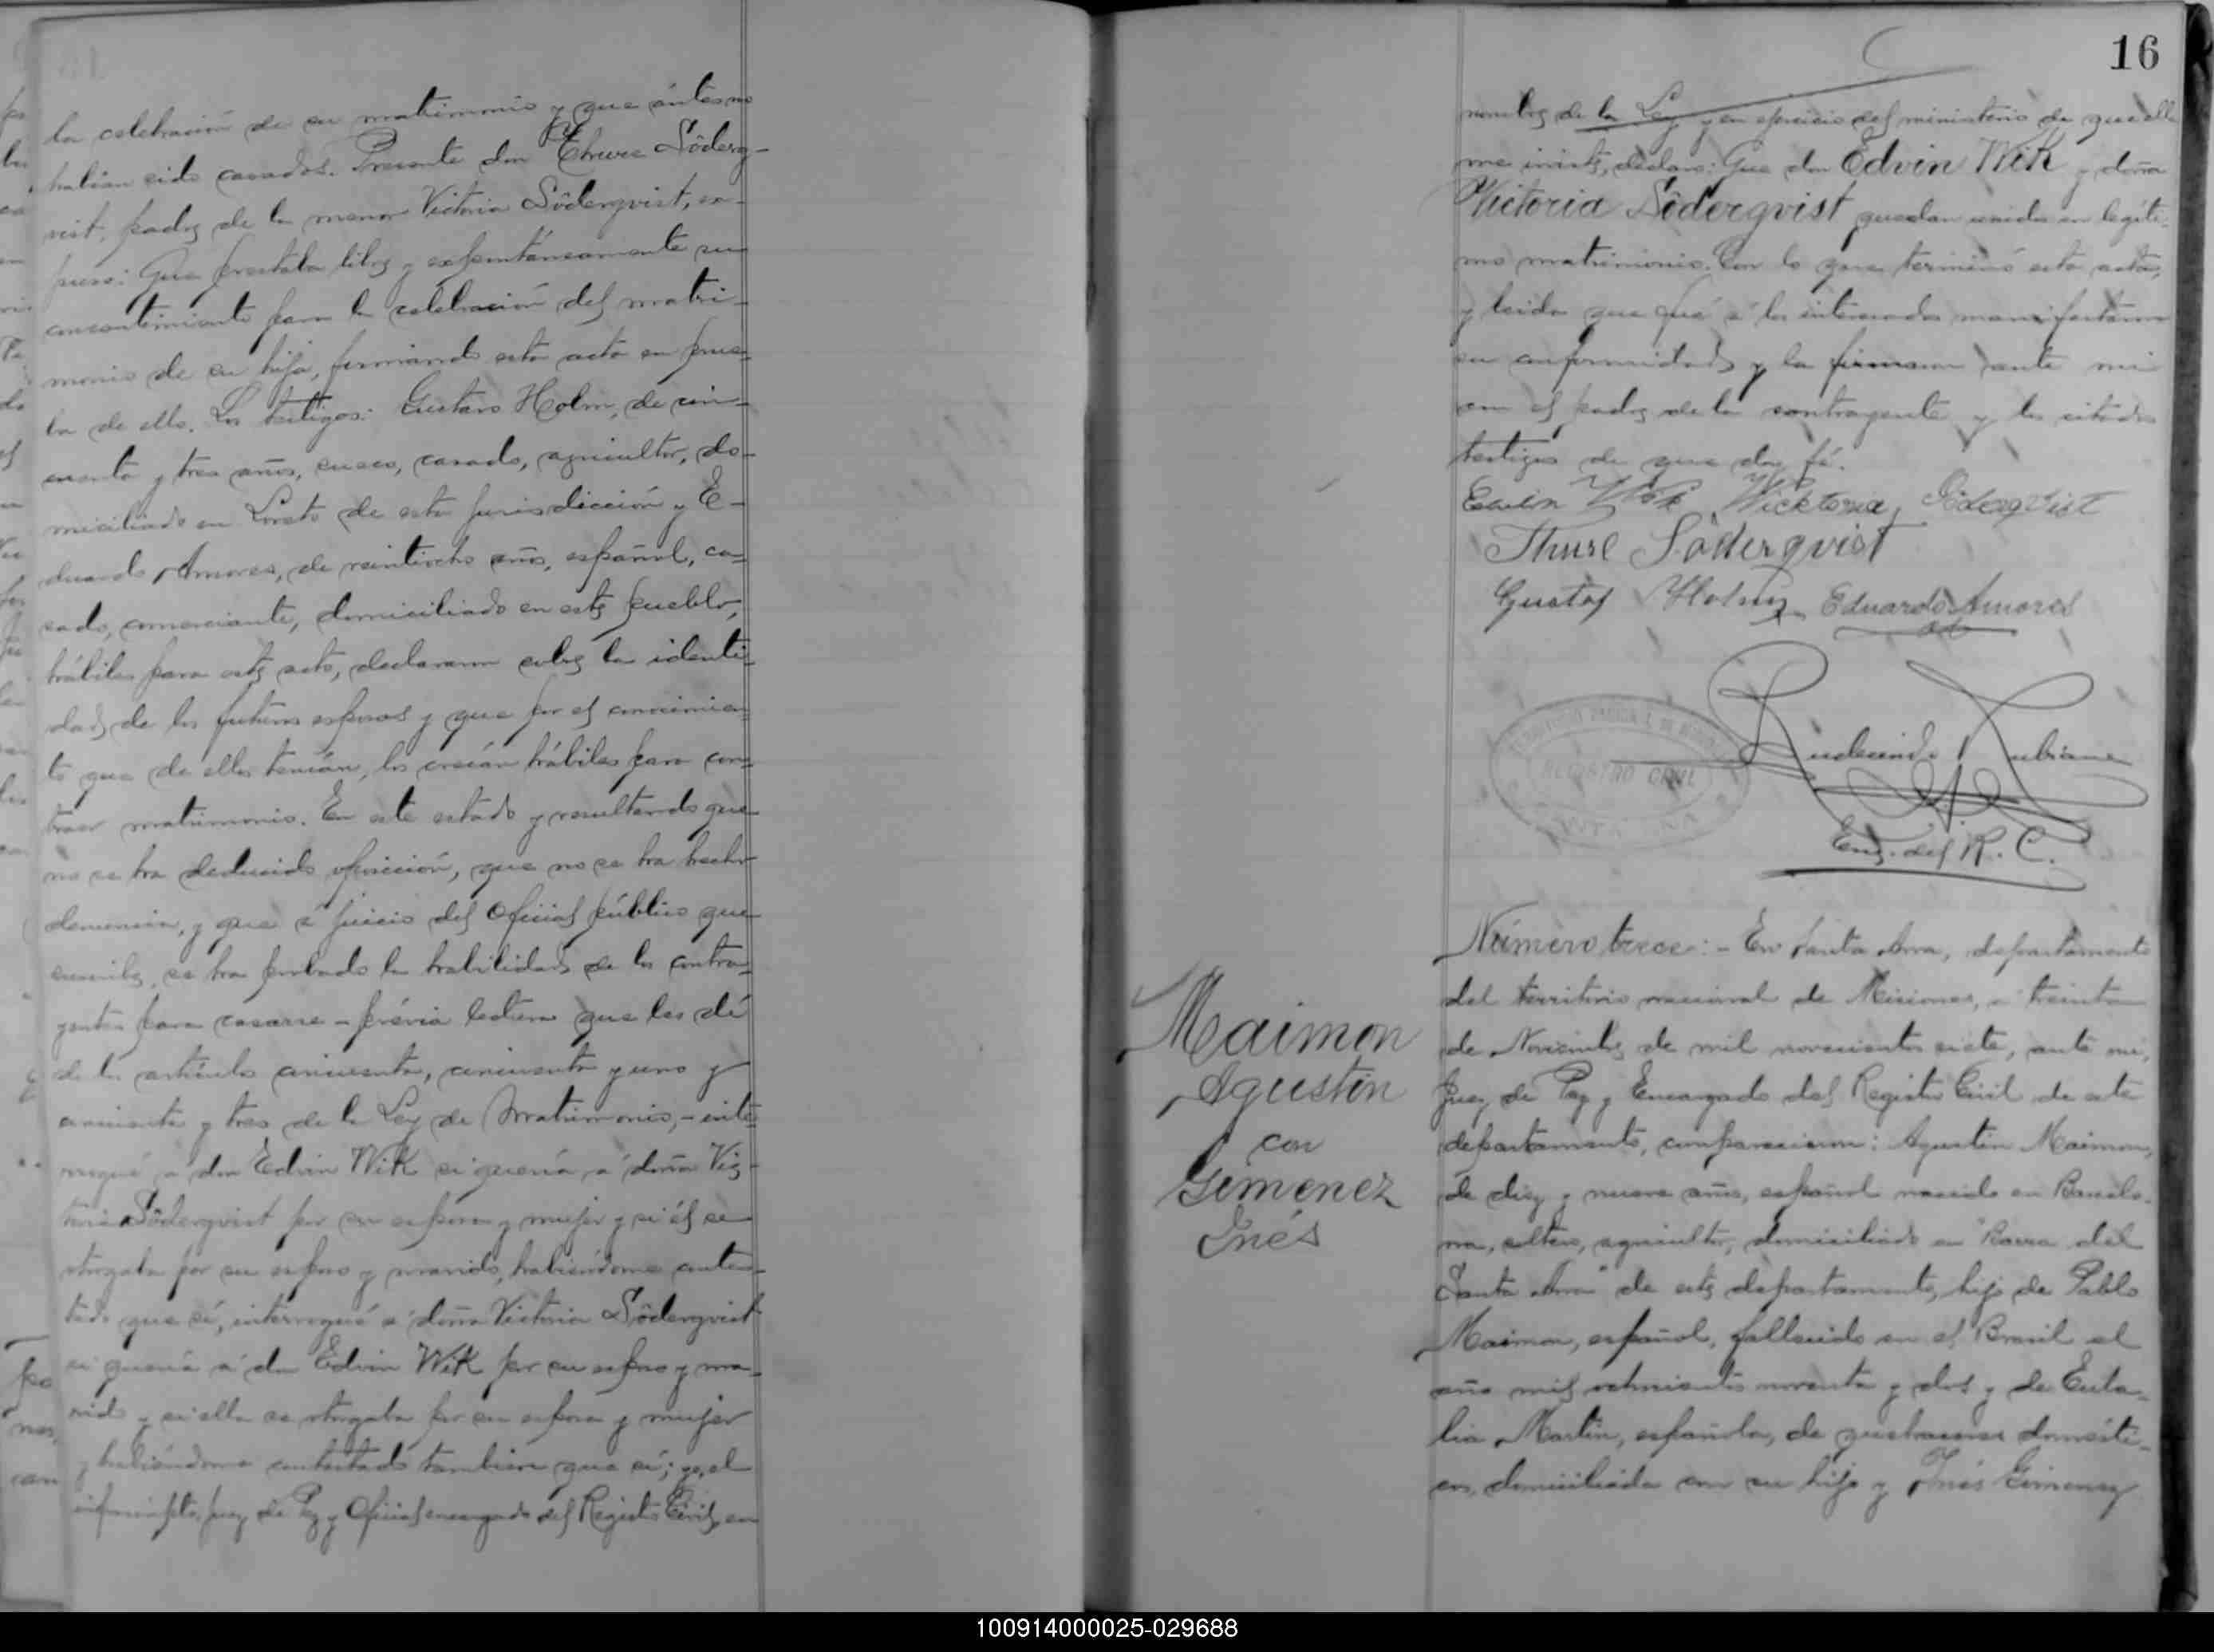 la celebración de su matrimonio y que ántes no
habían sido casados. Presente don Thure Söderq-
vist, padre de la menor Victoria Söderqvist, ex-
puso: Que prestaba libre y expontáneamente su
consentimiento para la celebración del matri-
monio de su hija, firmando esta acta en prue-
ba de ello. Los testigos: Gustavo Holm, de cin-
cuenta y tres años, sueco, casado, agricultor, do-
miciliado en Loreto de esta jurisdicción y E-
duardo Amores, de veintiocho años, español, ca-
sado, comerciante, domiciliado en este pueblo,
hábiles para este acto, declararon sobre la identi-
dad de los futuros esposos y que por el conocimien-
to que de ellos tenían, los creían hábiles para con-
traer matrimonio. En este estado y resultando que
no se ha deducido oposición, que no se ha hecho
denuncia, y que á juicio del Oficial público que
suscribe, se ha probado la habilidad de los contra-
yentes para casarse - prévia lectura que les dí
de los artículos cincuenta, cincuenta y uno y
cincuenta y tres de la Ley de Matrimonio, - inte-
rrogué á don Edvin Wik si quería á doña Vic-
toria Söderqvist por su esposa y mujer y si él se
otorgaba por su esposo y marido, habiéndome contes-
tado que sí, interrogué á doña Victoria Söderqvist
si quería á don Edvin Wik por su esposo y ma-
rido y si ella se otorgaba por su esposa y mujer
y habiéndome contestado tambien que sí; yo, el
infrascripto, Juez de Paz y Oficial encargado del Registro Civil, en
16
nombre de la Ley y en ejercicio del ministerio de que ella
me inviste, declaro: Que don Edvin Wik y doña
Victoria Söderqvist quedan unidos en legíti-
mo matrimonio. Con lo que terminó esta acta,
y leida que fué á los interesados manifestaron
su conformidad y la firmaron ante mi
con el padre de la contrayente y los citados
testigos de que doy fé.
Edvin Wik Wicktoria Söderqvist
Thure Söderqvist
Gustaf Holm Eduardo Amores
REGISTRO CIVIL
SANTA ANA
Rudecindo
Enc. del R. C.
Maimon
Agustín
con
Gimenez
Inés
Número trece: - En Santa Ana, departamento
del territorio nacional de Misiones, á treinta
de Noviembre de mil novecientos siete, ante mi,
Juez de Paz y Encargado del Registro Civil de este
departamento, comparecieron: Agustin Maimon,
de diez y nueve años, español nacido en Barcelo-
na, soltero, agricultor, domiciliado en "Barra del
Santa Ana" de este departamento, hijo de Pablo
Maimon, español, fallecido en el Brasil el
año mil ochocientos noventa y dos y de Eula-
lia Martin, española, de quehaceres domésti-
cos, domiciliada con su hijo y Inés Gimenez
100914000025-029688